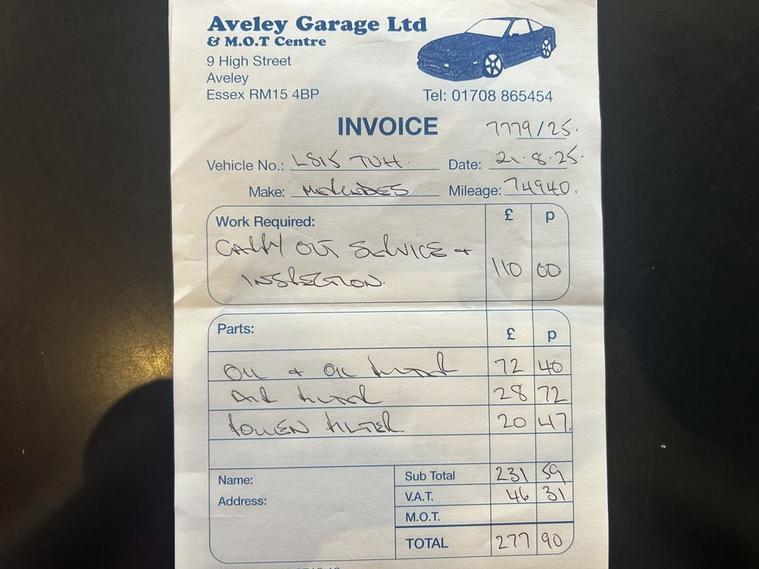 Aveley Garage Ltd
& M.O.T Centre
9 High Street
Aveley
Essex RM15 4BP
Tel: 01708 865454
INVOICE 7779/25.
Vehicle No.: LS15 TUH. Date: 21.8.25.
Make: MERCEDES Mileage: 74940.
Work Required: £ p
CARRY OUT SERVICE +
INSPECTION. 110 00
Parts: £ p
OIL + OIL FILTER 72 40
AIR FILTER 28 72
POLLEN FILTER 20 47.
Name: Sub Total 231 59
Address: V.A.T. 46 31
M.O.T.
TOTAL 277 90